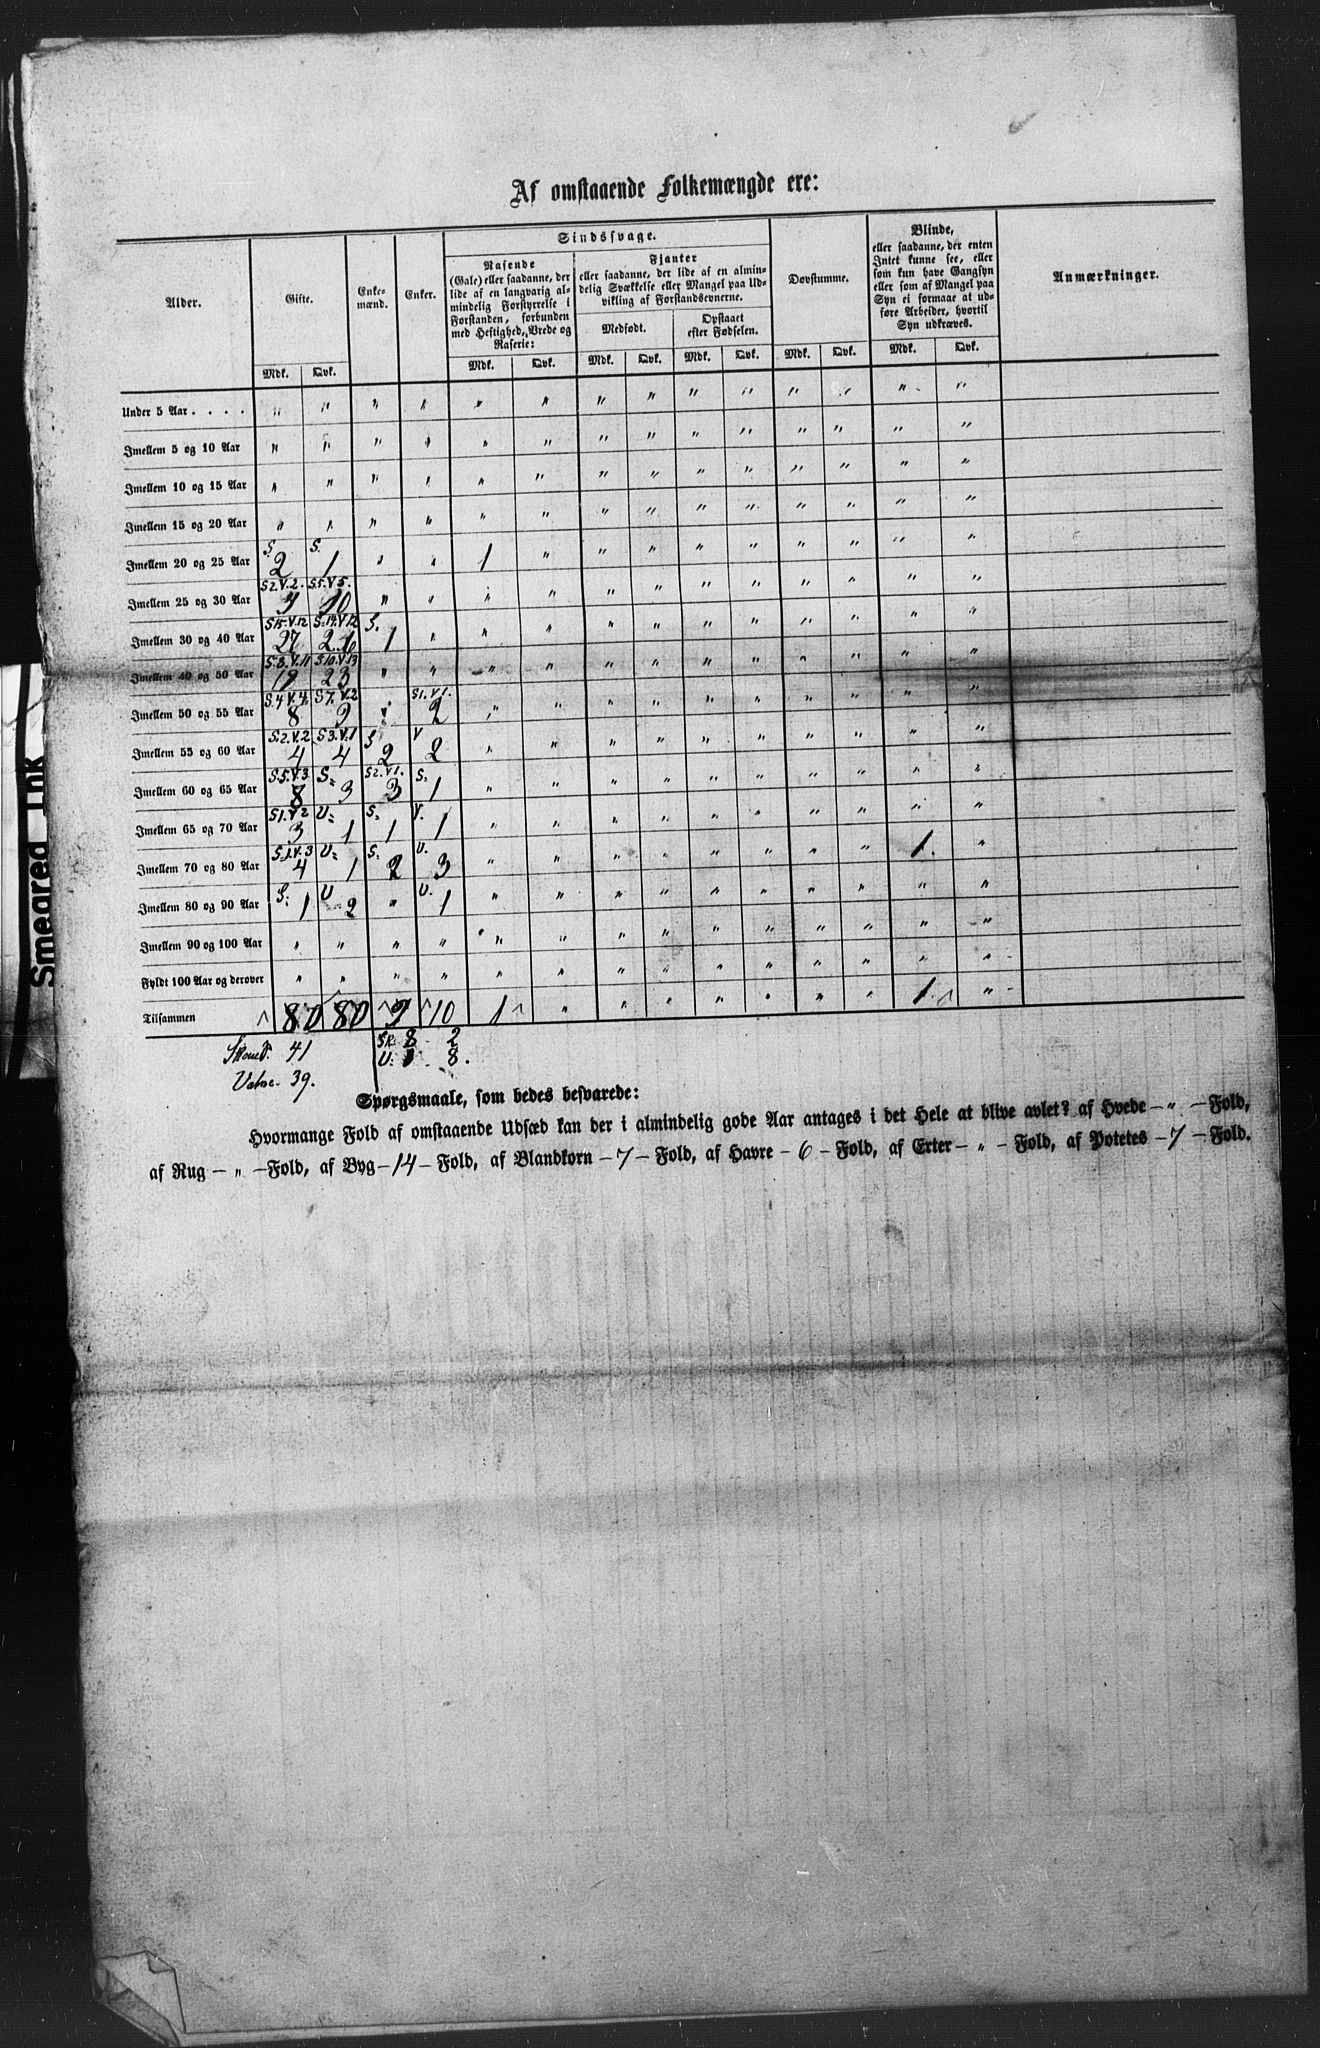 Af omstaaende Folkemængde ere:
Alder. Gifte. Enke-mænd. Enker. Sindssvage. Døvstumme. Blinde, Anmærkninger.
Rasende
(Gale) eller saadanne, der
lide af en langvarig al-
mindelig Forstyrrelse i
Forstanden, forbunden
med Heftighed, Vrede og
Raserie:
Fjanter
eller saadanne, der lide af en almin-
delig Svækkelse eller Mangel paa Ud-
vikling af Forstandsevnerne.
Medfødt. Opstaaet
efter Fødselen.
eller saadanne, der enten
Intet kunne see, eller
som kun have Gangsyn
eller som af Mangel paa
Syn ei formaae at ud-
føre Arbeider, hvortil
Syn udkræves.
Mdk. Qvk. Mdk. Qvk. Mdk. Qvk. Mdk. Qvk. Mdk. Qvk. Mdk. Qvk.
Under 5 Aar . . . . " " " " " " " " " " " " " "
Imellem 5 og 10 Aar " " " " " " " " " " " " " "
Imellem 10 og 15 Aar " " " " " " " " " " " " " "
Imellem 15 og 20 Aar " " " " " " " " " " " " " "
S. S.
Imellem 20 og 25 Aar 2 1 " " 1 " " " " " " " " "
S2.V.2. S5.V5.
Imellem 25 og 30 Aar 4 10 " " " " " " " " " " " "
S15.V.12 S.14.V.12 S.
Imellem 30 og 40 Aar 27 26 1 " " " " " " " " " " "
S.8.V.11 S10.V.13
Imellem 40 og 50 Aar 19 23 " " " " " " " " " " " "
S.4 V.4. S7.V.2 S1.V.1.
Imellem 50 og 55 Aar 8 9 " 2 " " " " " " " " " "
S.2.V.2 S3.V.1 S V
Imellem 55 og 60 Aar 4 4 2 2 " " " " " " " " " "
S.5.V.3 S: S2.V1. S:
Imellem 60 og 65 Aar 8 3 3 1 " " " " " " " " " "
S1.V.2 U: S: V.
Imellem 65 og 70 Aar 3 1 1 1 " " " " " " " " " "
S.1.V.3 U: S: U.
Imellem 70 og 80 Aar 4 1 2 3 " " " " " " " " 1. "
S: U U.
Imellem 80 og 90 Aar 1 2 " 1 " " " " " " " " " "
Imellem 90 og 100 Aar " " " " " " " " " " " " " "
Fyldt 100 Aar og derover " " " " " " " " " " " " " "
Tilsammen 80 80 9 10 1 " " " " " " " 1. "
41 8 2
39. U: 1 8.
Spørgsmaale, som bedes besvarede:
Hvormange Fold af omstaaende Udsæd kan der i almindelig gode Aar antages i det Hele at blive avlet? af Hvede — " — Fold,
af Rug — " — Fold, af Byg — 14 — Fold, af Blandkorn — 7 — Fold, af Havre — 6 — Fold, af Erter — " — Fold, af Potetes — 7 — Fold.
Smeared Ink